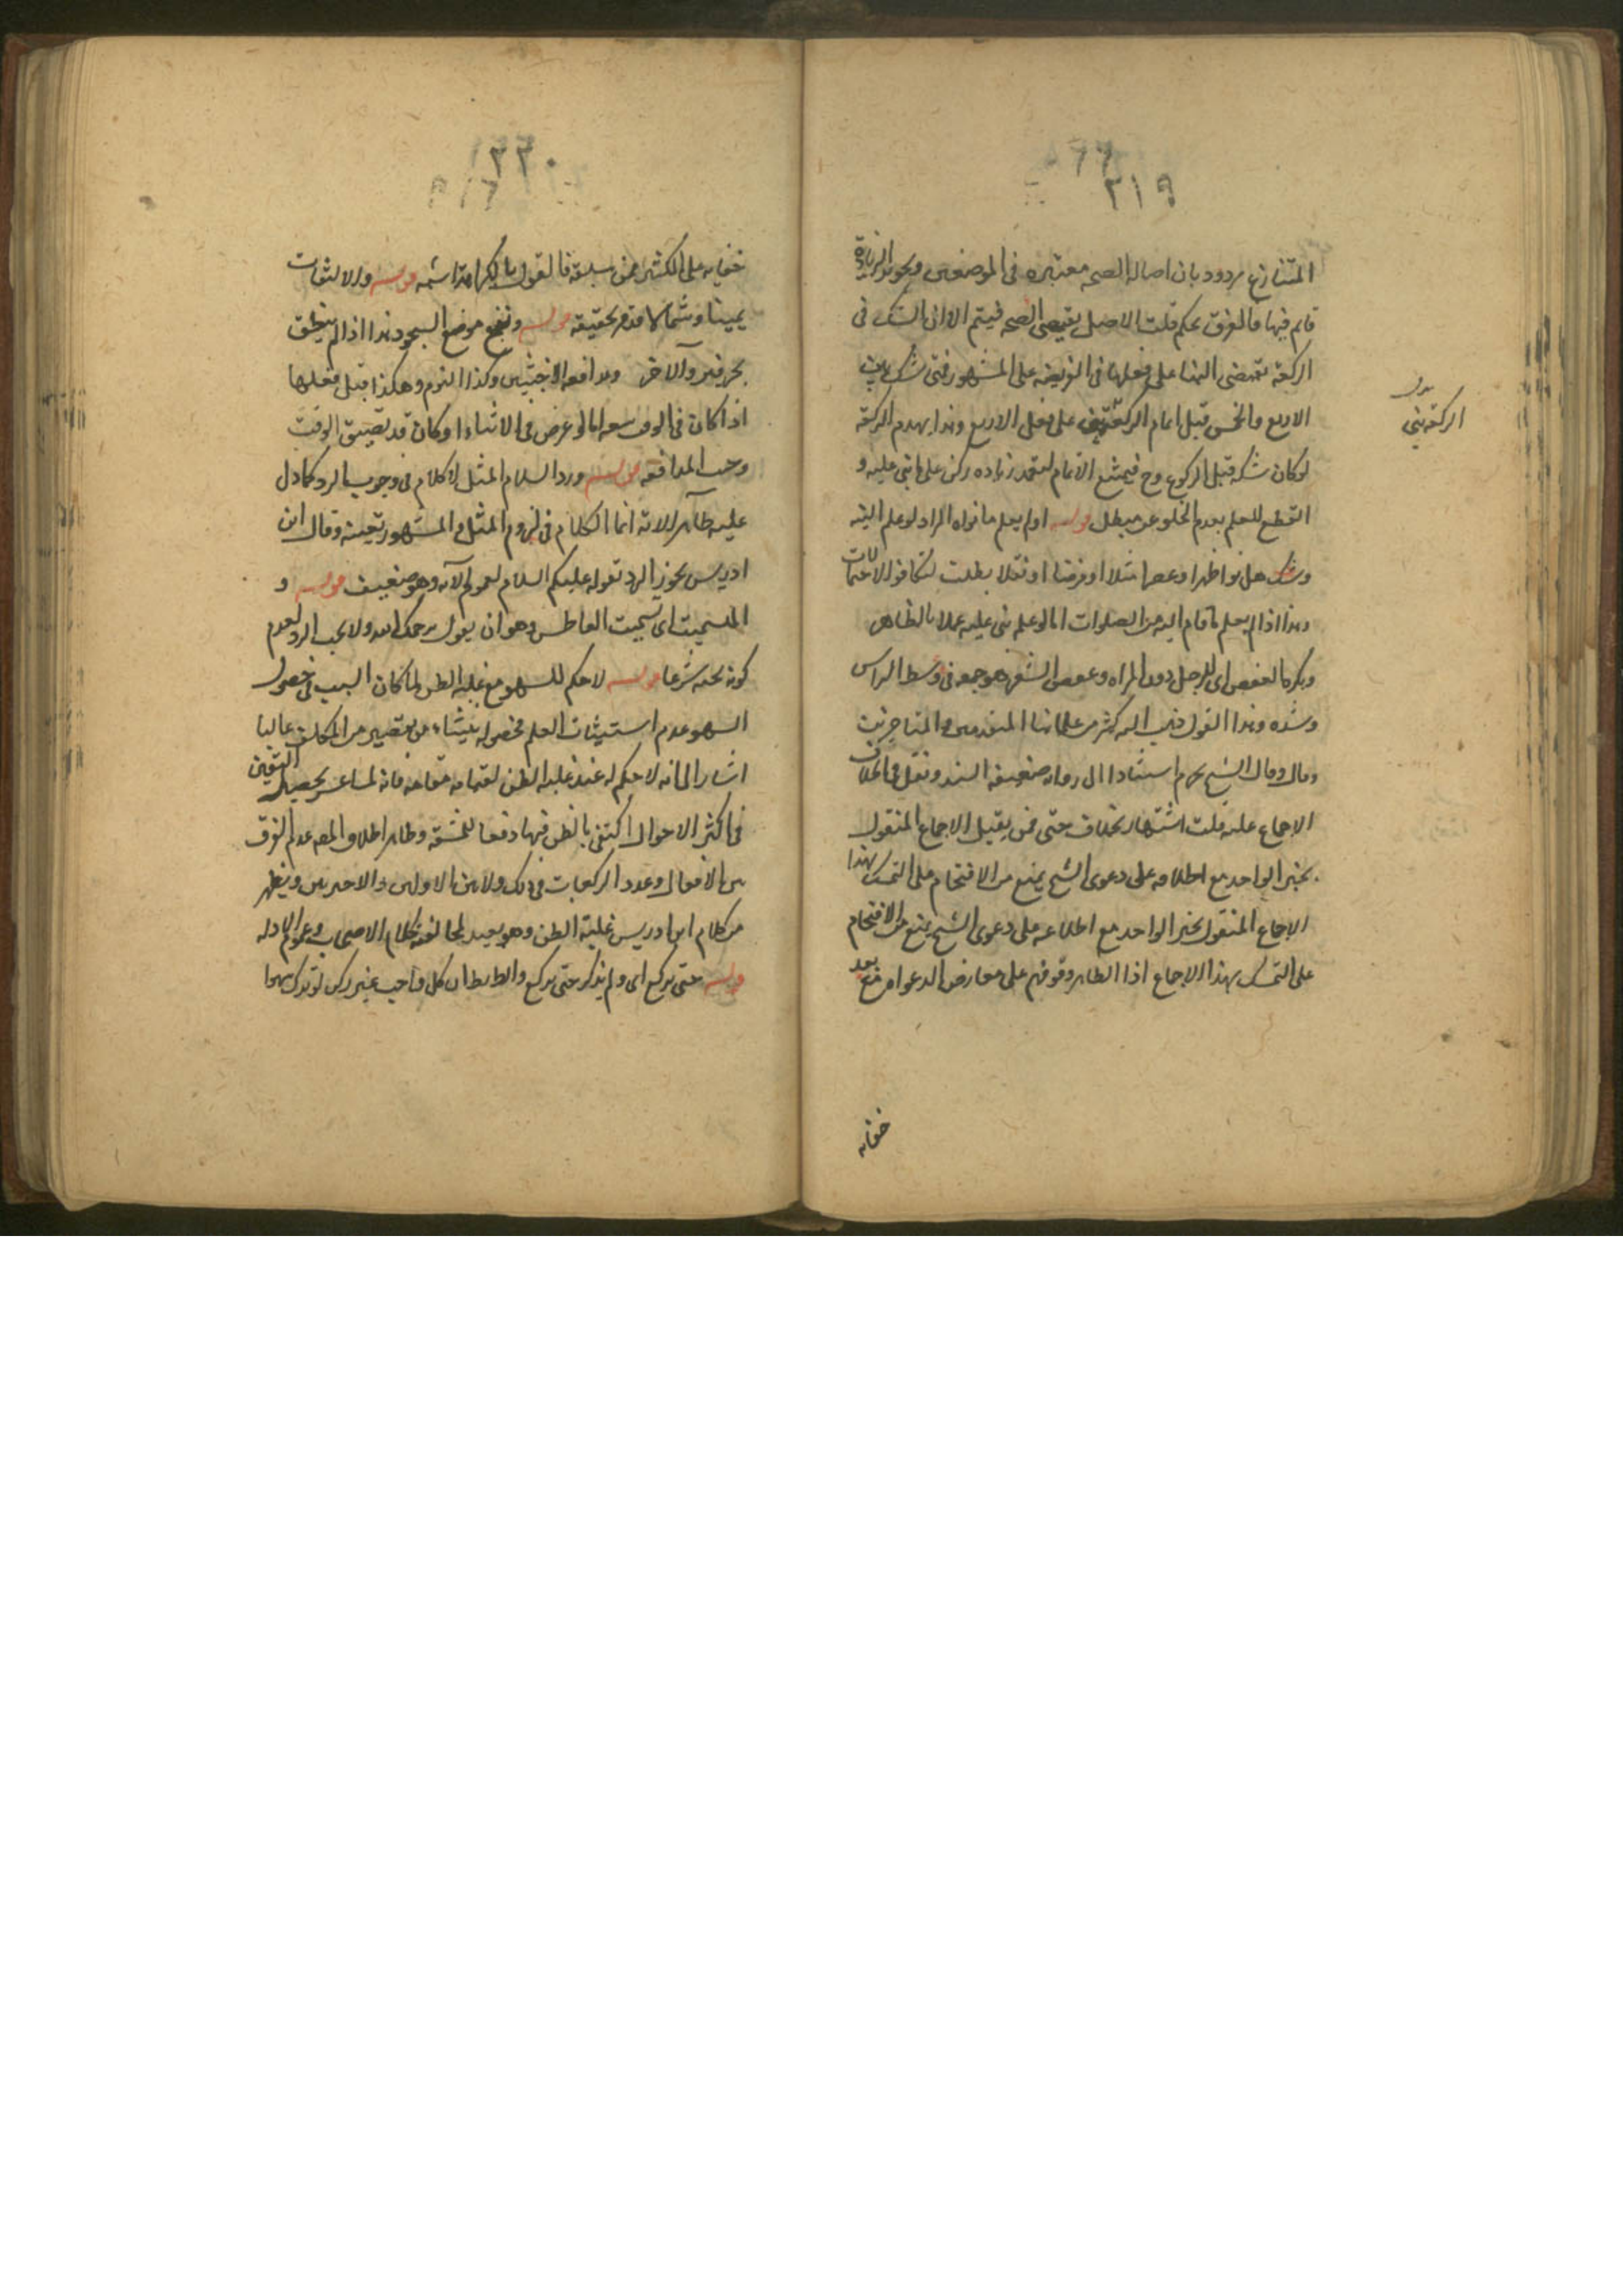 ٢١٩
المتنازع مردود بان اصاله الصحه معتبره فى الموضعين وتجويز الزيادة
قايم فيها فالفرق تحكم قلت الاصل يقتضى الصحه فيتم الا ان الشك فى
الركعة يقتضى البنا على فعلها فى الفريضه على المشهور فتى شك بين
الاربع والخمس قبل اتمام الركعة بنى على فعل الاربع وبذا يهدم الركعة
لو كان شكه قبل الركوع وح فيمتنع الاتمام لتعمد زياده ركن على ما بنى عليه و
القطع للعلم بعدم الخلو عن مبطل قوله او لم يعلم ما نواه المراد لو علم النية
وشك هل نوا ظهرا او عصرا مثلا او فرضا او نفلا بطلت لتكافو الاحتمالات
وبذا اذا لم يعلم ما قام اليه من الصلوات اما لو علم بنى عليه عملا بالظاهر
ويكره العقص اى للرجل دون المراه وعقص الشعر هو جمعه فى وسط الراس
وشده وبذا القول ذهب اليه كثير من علمائنا المتقدمين والمتاخرين
وقال الشيخ يحرم استنادا الى روايه ضعيفه السند ونقل فى الخلاف
الاجماع عليه قلت اشتهار بخلاف حتى ممن يقبل الاجماع المنقول
بخبر الواحد مع اطلاعه على دعوى الشيخ يمنع من الاقتحام على التمسك بهذا
الاجماع المنقول بخبر الواحد مع اطلاعه على دعوى الشيخ يمنع من الاقتحام
على التمسك بهذا الاجماع اذا الظاهر وقوفهم على معارض الدعوا مع بعد
خفائه
بدل
الركعة بنى
٢٢٠
خفايه على الكثير ممن سبقه فالقول بالكراهة اشبه قوله والالتفات
يمينا وشمالا قدم تحقيقه قوله ونفخ موضع السجود بذا اذا لم ينطق
بحرفين والاخر ومدافعة الاخبثين وكذا النوم وهكذا قبل فعلها
اذا كان فى الوقت سعه اما لو عرض فى الاثناء او كان قد تضيق الوقت
وجب المدافعه قوله ورد السلام المثل لا كلام فى وجوب الرد كما دل
عليه ظاهر الاية انما الكلام فى لزوم المثل والمشهور تعينه وقال ابن
ادريس يجوز الرد بقوله عليكم السلام لعموم الآية وهو ضعيف قوله و
التسميت اى تسميت العاطس وهو ان يقول يرحمك الله ولا يجب الرد لعدم
كونه تحية شرعا قوله لا حكم للسهو مع غلبة الظن لما كان السبب فى حصول
السهو عدم استيثاق العلم فحصوله ينشاء من تقصير من المكلف غالبا
اشار الى انه لا حكم له عند غلبة الظن لقيامه مقامه فانه لما عسر تحصيل اليقين
فى اكثر الاحوال اكتفى بالظن فيها دفعا للمشقة وظاهر اطلاق المصه عدم الفرق
بين الافعال وعدد الركعات فى ذلك ولا بين الاولين والاخيرين ويظهر
من كلام ابن ادريس غلبة الظن وهو بعيد لمخالفته كلام الاصحاب وعموم الادله
قوله حتى يركع اى ولم يذكر حتى يركع والظابط ان كل واجب غير ركن لو ترك سهوا